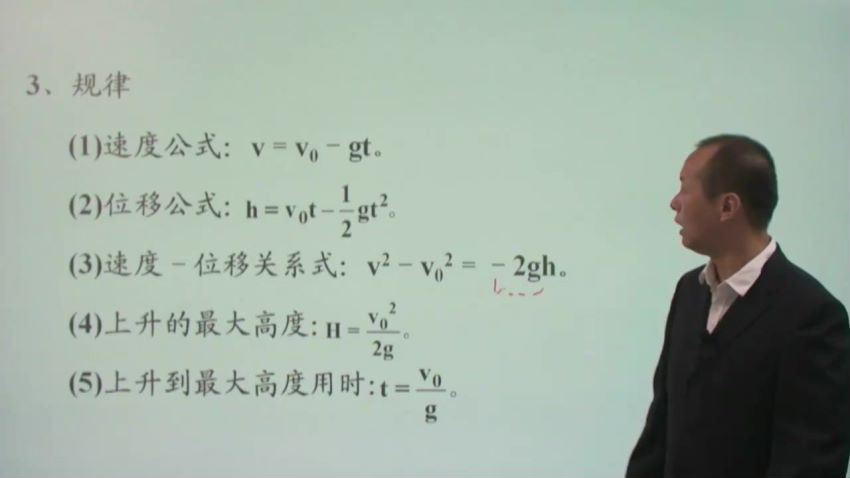 3、规律
(1)速度公式：v = v₀ − gt。
(2)位移公式：h = v₀t − 1/2 gt²。
(3)速度－位移关系式：v² − v₀² = −2gh。
(4)上升的最大高度：H = v₀²/2g。
(5)上升到最大高度用时：t = v₀/g。